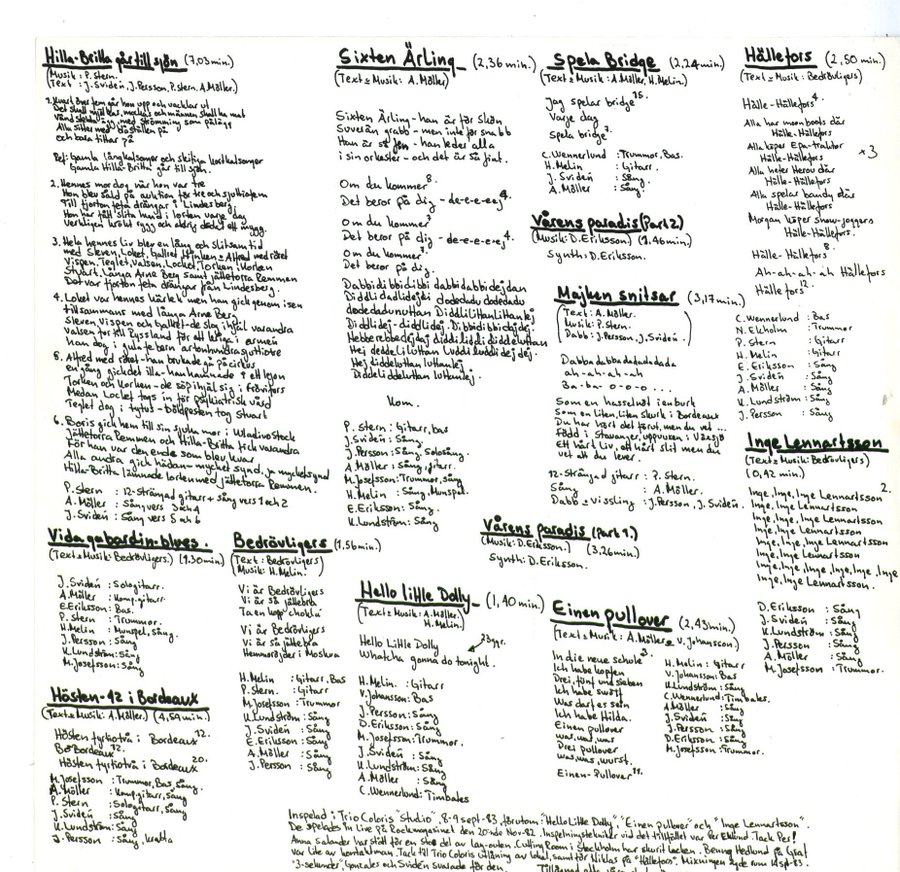 Hilla-Britta går till sjön (7,03min.)
(Musik: P. Stern.
Text: J. Svidén, J. Persson, P. Stern, A. Möller.)
Ref: Gamla långkalsonger och skitiga kortkalsonger
Gamla Hilla-Britta går till sjön.
2. Hennes mor dog när hon var tre
Hon blev såld på auktion för tre och sjuttiofem
Till fjorton feta drängar i Lindesberg.
Hon har fått slita hund i lorten varje dag
Verkligen krökt rygg och aldrig delat ett mygg.
3. Hela hennes liv blev en lång och slitsam tid
med Steven, Loket, ballret Hinken & Alfred med röret
Vispen, Teglet, Valsen, Locket, Torken, Korken
Stuart, Långa Arne Berg samt jälletorra Remmen
Det var fjorton feta drängar från Lindesberg.
4. Loket var hennes kärlek men han gick genom isen
tillsammans med långa Arne Berg
Steven, Vispen och ballret - de slog ihjäl varandra
Valsen for till Ryssland för att långa i armén
han dog i gula febern artonhundrasjuttiotre
5. Alfred med röret - han brukade gå på cirkus
en gång gick det illa - han hamnade i ett lejon
Torken och Korken - de söp ihjäl sig i Frövifors
Medan Locket togs in för psykiatrisk vård
Teglet dog i tyfus - böldpesten tog Stuart
6. Boris gick hem till sin sjuka mor i Wladivostock
Jälletorra Remmen och Hilla-Britta fick varandra
För han var den ende som blev kvar
Alla andra gick hädan - mycket synd, ja mycket synd
Hilla-Britta lämnade lorten med jälletorra Remmen.
P. Stern : 12-strängad gitarr + sång vers 1 och 2
A. Möller : Sång vers 3 och 4
J. Svidén : Sång vers 5 och 6
Vida gabardin-blues.
(Text & Musik: Bedrövligers.) (1,30min.)
J. Svidén : Sologitarr.
A. Möller : Kompgitarr.
E. Eriksson: Bas.
P. Stern : Trummor.
H. Melin : Munspel, sång.
J. Persson: Sång
K. Lundström: Sång
M. Josefsson: Sång
Hösten-42 i Bordeaux
(Text & Musik: A. Möller.) (4,59min.)
Hösten fyrtiotvå i Bordeaux 12.
Bo-Bordeaux 12.
Hösten fyrtiotvå i Bordeaux 20.
M. Josefsson : Trummor, Bas, Sång.
A. Möller : Kompgitarr, Sång
P. Stern : Sologitarr, Sång
J. Svidén : Sång
K. Lundström: Sång
J. Persson : Sång, kratta
Sixten Ärling (2,36min.)
(Text & Musik: A. Möller)
Sixten Ärling - han är för skön
Suverän grabb - men inte för snabb
Han är så fin - han leder alla
i sin orkester - och det är så fint.
Om du kommer 8.
Det beror på dig - de-e-e-eej 4.
Om du kommer 3.
Det beror på dig - de-e-e-e-ej 4.
Om du kommer 7.
Det beror på dig.
Dabbidibbidibbi dabbidabbidejdan
Diddlidadlidejdi dodedadu dodedadu
dodedadunuttan Diddlilittanlittanlej
Diddlidej-diddlidej. Dibbidibbidejdej
Hebberebbedejdej diddiliddi diddeluttan
Hej deddelituttan Luddiluddidejdej.
Hej diddeluttan luttanlej
Diddeliddeluttan luttanlej.
Kom.
P. Stern : Gitarr, bas
J. Svidén : Sång.
J. Persson : Sång Solosång.
A. Möller : Sång, gitarr.
M. Josefsson: Trummor, sång
H. Melin : Sång, Munspel.
E. Eriksson: Sång.
K. Lundström: Sång
Bedrövligers (1,56min.)
(Text: Bedrövligers
Musik: H. Melin.)
Vi är Bedrövligers
Vi är så jällebra
Ta en kopp choklad
Vi är Bedrövligers
Vi är så jällebra
Hemmorojder i Moskva
H. Melin : Gitarr, Bas
P. Stern : Gitarr.
M. Josefsson : Trummor
K. Lundström : Sång
J. Svidén : Sång
E. Eriksson : Sång
A. Möller : Sång
J. Persson : Sång
Hello little Dolly (1,40min.)
(Text & Musik: A. Möller.
H. Melin.)
Hello Little Dolly
Whatcha gonna do tonight.
H. Melin. : Gitarr
V. Johansson: Bas
J. Persson: Sång
D. Eriksson: Sång
M. Josefsson: Trummor.
J. Svidén : Sång
K. Lundström: Sång
A. Möller : Sång
C. Wennerlund: Timbales
Spela Bridge (2,24min.)
(Text & Musik: A. Möller, H. Melin.)
Jag spelar bridge 15.
Varje dag
Spela bridge 7.
C. Wennerlund : Trummor, Bas.
H. Melin : Gitarr.
J. Svidén : Sång.
A. Möller : Sång
Vårens paradis (Part 2)
(Musik: D. Eriksson) (1,46min.)
Synth: D. Eriksson.
Majken snitsar (3,17min.)
(Text: A. Möller.
Musik: P. Stern.
Dabb: J. Persson, J. Svidén.)
Dabbadabbadadadada
ah-ah-ah-ah
Ba-ba-o-o-o...
Som en hasselnöt i en burk
Som en liten, liten skurk i Bordeaux
Du har hört det förut, men du vet...
Född i Stavanger, uppvuxen i Växsjö
Ett hårt liv, ett hårt slit men du
vet att du lever.
12-strängad gitarr : P. Stern.
Sång : A. Möller.
Dabb & Vissling : J. Persson, J. Svidén.
Vårens paradis (Part 1.)
(Musik: D. Eriksson.) (3,26min.)
Synth: D. Eriksson.
Einen pullover (2,43min.)
(Text & Musik: A. Möller & V. Johansson.)
In die neue Schule 3.
Ich habe kopfen
Drei, fünf und sieben
Ich habe zwölf
Was darf es sein
Ich habe Hilda.
Einen pullover
was, was, was
Drei pullover
was, was, wurst.
Einen-Pullover 11.
H. Melin : Gitarr
V. Johansson: Bas
K. Lundström: Sång
C. Wennerlund: Timbales.
A. Möller : Sång
J. Svidén : Sång
J. Persson : Sång
D. Eriksson : Sång
M. Josefsson: Trummor.
Hällefors (2,50min.)
(Text & Musik: Bedrövligers)
Hälle-Hällefors 4.
Alla har moonboots där
Hälle-Hällefors
Alla köper Epa-traktor
Hälle-Hällefors
Alla heter Hérou där
Hälle-Hällefors
Alla spelar bandy där
Hälle-Hällefors
Morgan köper show-joggers
Hälle-Hällefors.
x3
Hälle-Hällefors 8.
Ah-ah-ah-ah Hällefors
Hällefors 12.
C. Wennerlund : Bas
N. Ekholm : Trummor
P. Stern : Gitarr
H. Melin : Gitarr
E. Eriksson : Sång
J. Svidén : Sång
A. Möller : Sång
K. Lundström : Sång
J. Persson : Sång
Inge Lennartsson
(Text & Musik: Bedrövligers)
(0,42 min.)
2.
Inge, Inge, Inge Lennartsson
Inge, Inge Lennartsson
Inge, Inge, Inge Lennartsson
Inge, Inge, Inge Lennartsson
Inge, Inge Lennartsson
Inge, Inge, Inge, Inge, Inge
Inge, Inge Lennartsson.
D. Eriksson : Sång
J. Svidén : Sång
K. Lundström : Sång
J. Persson : Sång
A. Möller : Sång
M. Josefsson : Trummor.
Inspelad i Trio Coloris "Studio", 8-9 sept-83, förutom: "Hello Little Dolly", "Einen pullover" och "Inge Lennartsson".
De spelades in Live på Rockmagasinet den 20:de Nov-82. Inspelningstekniker vid det tillfället var Per Eklund. Tack Per!
Anna Salander har stött för en stor del av lay-outen. Cutting Room i Stockholm har skurit lacken. Benny Hedlund på Graf
var lite av kontaktman. Tack till Trio Coloris utlåning av lokal, samt för Niklas på "Hällefors". Mixningen gjordes runt 14 sept-83.